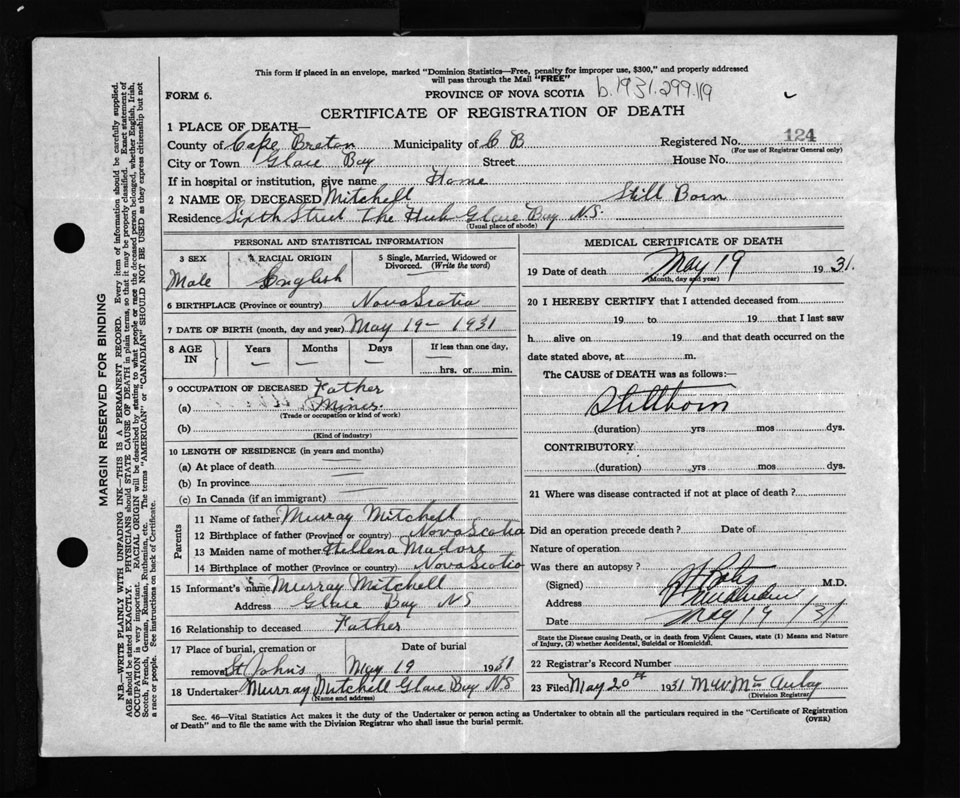 This form if placed in an envelope, marked "Dominion Statistics—Free, penalty for improper use, $300," and properly addressed
will pass through the Mail "FREE"
FORM 6.
PROVINCE OF NOVA SCOTIA
b.1931.299.119
CERTIFICATE OF REGISTRATION OF DEATH
1 PLACE OF DEATH—
124
County of Cape Breton Municipality of C B Registered No.
(For use of Registrar General only)
City or Town Glace Bay Street House No.
If in hospital or institution, give name Home
2 NAME OF DECEASED Mitchell Still Born
Residence Sixth Street The Hub Glace Bay N.S.
(Usual place of abode)
PERSONAL AND STATISTICAL INFORMATION
3 SEX 4 RACIAL ORIGIN 5 Single, Married, Widowed or
Divorced. (Write the word)
Male English
6 BIRTHPLACE (Province or country) Nova Scotia
7 DATE OF BIRTH (month, day and year) May 19 - 1931
8 AGE IN Years Months Days If less than one day,
hrs. or min.
9 OCCUPATION OF DECEASED Father
(a) Miner
(Trade or occupation or kind of work)
(b)
(Kind of industry)
10 LENGTH OF RESIDENCE (in years and months)
(a) At place of death
(b) In province
(c) In Canada (if an immigrant)
Parents
11 Name of father Murray Mitchell
12 Birthplace of father (Province or country) Nova Scotia
13 Maiden name of mother Hellena Madore
14 Birthplace of mother (Province or country) Nova Scotia
15 Informant's name Murray Mitchell
Address Glace Bay NS
16 Relationship to deceased Father
17 Place of burial, cremation or Date of burial
removal St John's May 19 1931
18 Undertaker Murray Mitchell Glace Bay N.S
(Name and address)
MEDICAL CERTIFICATE OF DEATH
19 Date of death May 19 1931.
(Month, day and year)
20 I HEREBY CERTIFY that I attended deceased from
19 to 19 that I last saw
h alive on 19 and that death occurred on the
date stated above, at m.
The CAUSE of DEATH was as follows:—
Stillborn
(duration) yrs mos dys.
CONTRIBUTORY
(duration) yrs mos dys.
21 Where was disease contracted if not at place of death?
Did an operation precede death? Date of
Nature of operation
Was there an autopsy?
(Signed) M.D.
Address
Date May 19/31
State the Disease causing Death, or in death from Violent Causes, state (1) Means and Nature
of Injury, (2) whether Accidental, Suicidal or Homicidal.
22 Registrar's Record Number
23 Filed May 20th 1931
(Division Registrar)
Sec. 46—Vital Statistics Act makes it the duty of the Undertaker or person acting as Undertaker to obtain all the particulars required in the "Certificate of Registration
of Death" and to file the same with the Division Registrar who shall issue the burial permit.
(OVER)
MARGIN RESERVED FOR BINDING
N.B.—WRITE PLAINLY WITH UNFADING INK—THIS IS A PERMANENT RECORD. Every item of information should be carefully supplied.
AGE should be stated EXACTLY. PHYSICIANS should STATE CAUSE OF DEATH in plain terms, so that it may be properly classified. Exact statement of
OCCUPATION is very important. RACIAL ORIGIN will be described by stating to what people or race the deceased person belonged, whether English, Irish,
Scotch, French, German, Russian, Ruthenian, etc. The terms "AMERICAN" or "CANADIAN" SHOULD NOT BE USED as they express citizenship but not
a race or people. See instructions on back of Certificate.